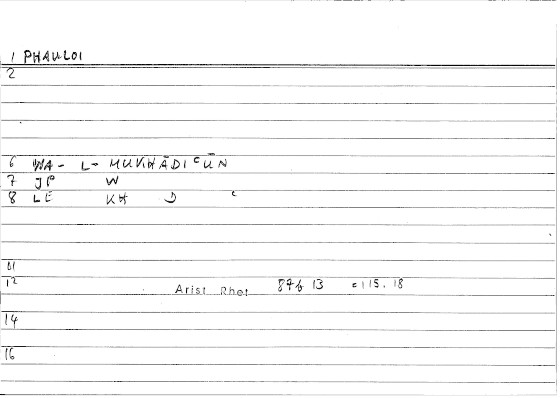 1 PHAULOI
2
6 WA- L- MUKHĀDIʿŪN
7 JP W
8 LE KH D ʿ
11
12 Arist Rhet 87b 13 = 115.18
14
16